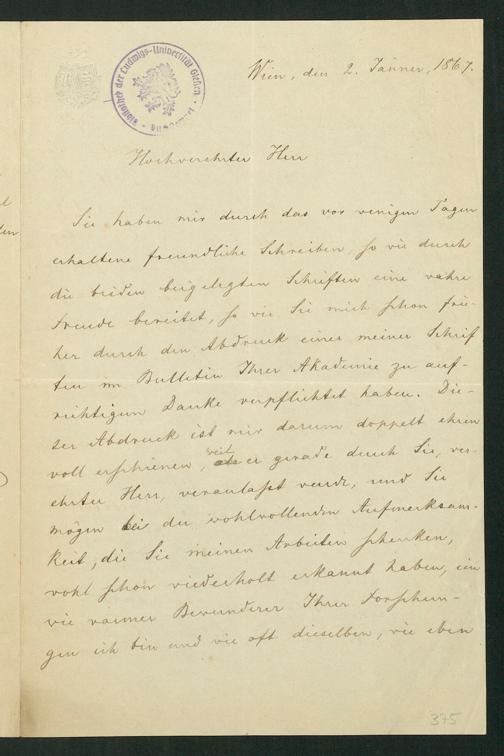 Bibliothek der Ludwigs-Universität Gießen
Wien, den 2. Jänner, 1867.
Hochverehrter Herr
Sie haben mir durch das vor wenigen Tagen
erhaltene freundliche Schreiben, so wie durch
die beiden beigelegten Schriften eine wahre
Freude bereitet, so wie Sie mich schon frü-
her durch den Abdruck eines meiner Schrif
ten im Bulletin Ihrer Akademie zu auf-
richtigem Danke verpflichtet haben. Die-
ser Abdruck ist mir darum doppelt ehren
voll erschienen, weil er gerade durch Sie, ver-
ehrter Herr, veranlaßt wurde, und Sie
mögen bei der wohlwollenden Aufmerksam-
keit, die Sie meinen Arbeiten schenken,
wohl schon wiederholt erkannt haben, ein
wie warmer Bewunderer Ihrer Forschun-
gen ich bin und wie oft dieselben, wie eben
375